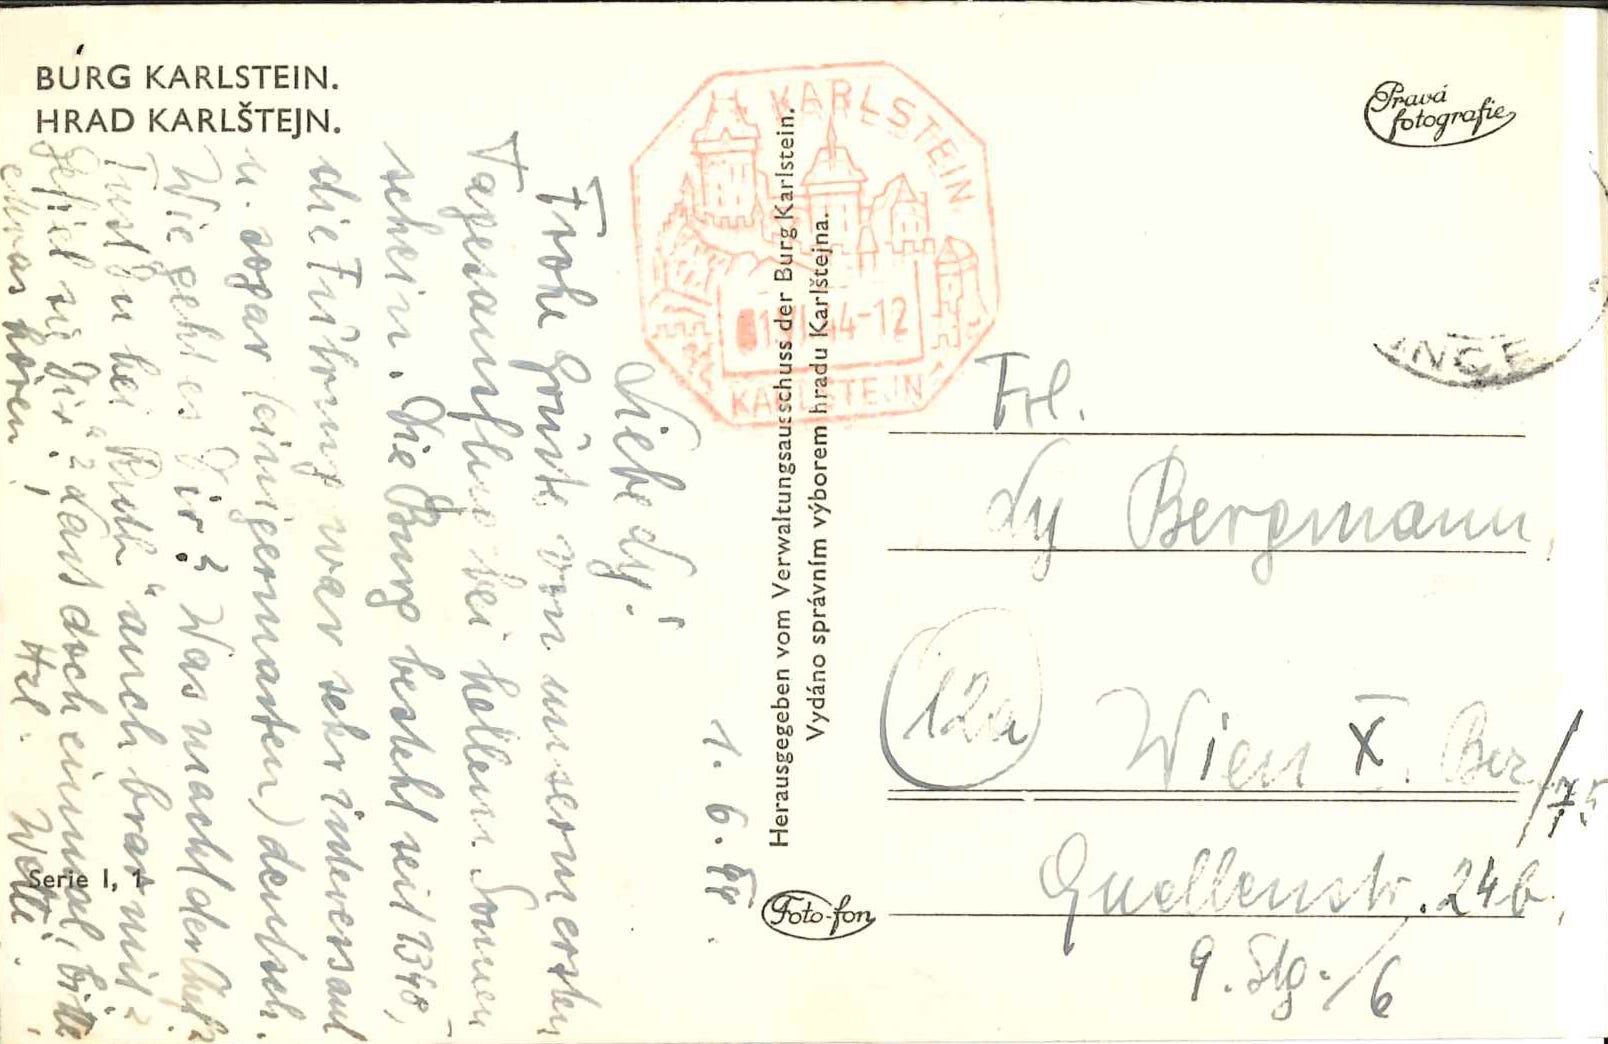 BURG KARLSTEIN.
HRAD KARLŠTEJN.
Pravá
fotografie
KARLSTEIN
1.VI.44-12
KARLŠTEJN
NCE
Herausgegeben vom Verwaltungsausschuss der Burg Karlstein.
Vydáno správním výborem hradu Karlštejna.
Foto-fon
Serie I, 1
1. 6. 44.
Liebe Ly!
Frohe Grüße von unserm ersten
Tagesausflug bei hellem Sonnen-
schein. Die Burg besteht seit 1348,
die Führung war sehr interessant
u. sogar (einigermasten) deutsch.
Wie geht es Dir? Was macht der
Tust Du bei "Rudi" auch brav mit?
Gefiel sie Dir? Lass doch einmal, bitte
etwas hören!
Hzl.
Frl.
Ly Bergmann,
12a
Wien X. Ber
/75
Quellenstr. 24b,
9. Stg./6